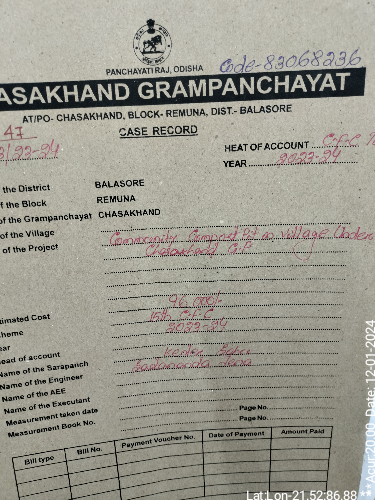 PANCHAYATI RAJ, ODISHA
Code-83068236
ASAKHAND GRAMPANCHAYAT
AT/PO- CHASAKHAND, BLOCK- REMUNA, DIST.- BALASORE
47
CASE RECORD
HEAT OF ACCOUNT
YEAR 2023-24
the District BALASORE
of the Block REMUNA
of the Grampanchayat CHASAKHAND
of the Village
of the Project Community Compost Pit at village Under
Chasakhand G.P
timated Cost
heme 15th C.F.C
ear 2023-24
ead of account
Name of the Sarapanch
Name of the Engineer
Name of the AEE
Name of the Executant
Measurement taken date Page No.
Measurement Book No. Page No.
Bill type Bill No. Payment Voucher No. Date of Payment Amount Paid
Lat Lon-21.52:86.88
***Acur:20.00, Date:12-01-2024